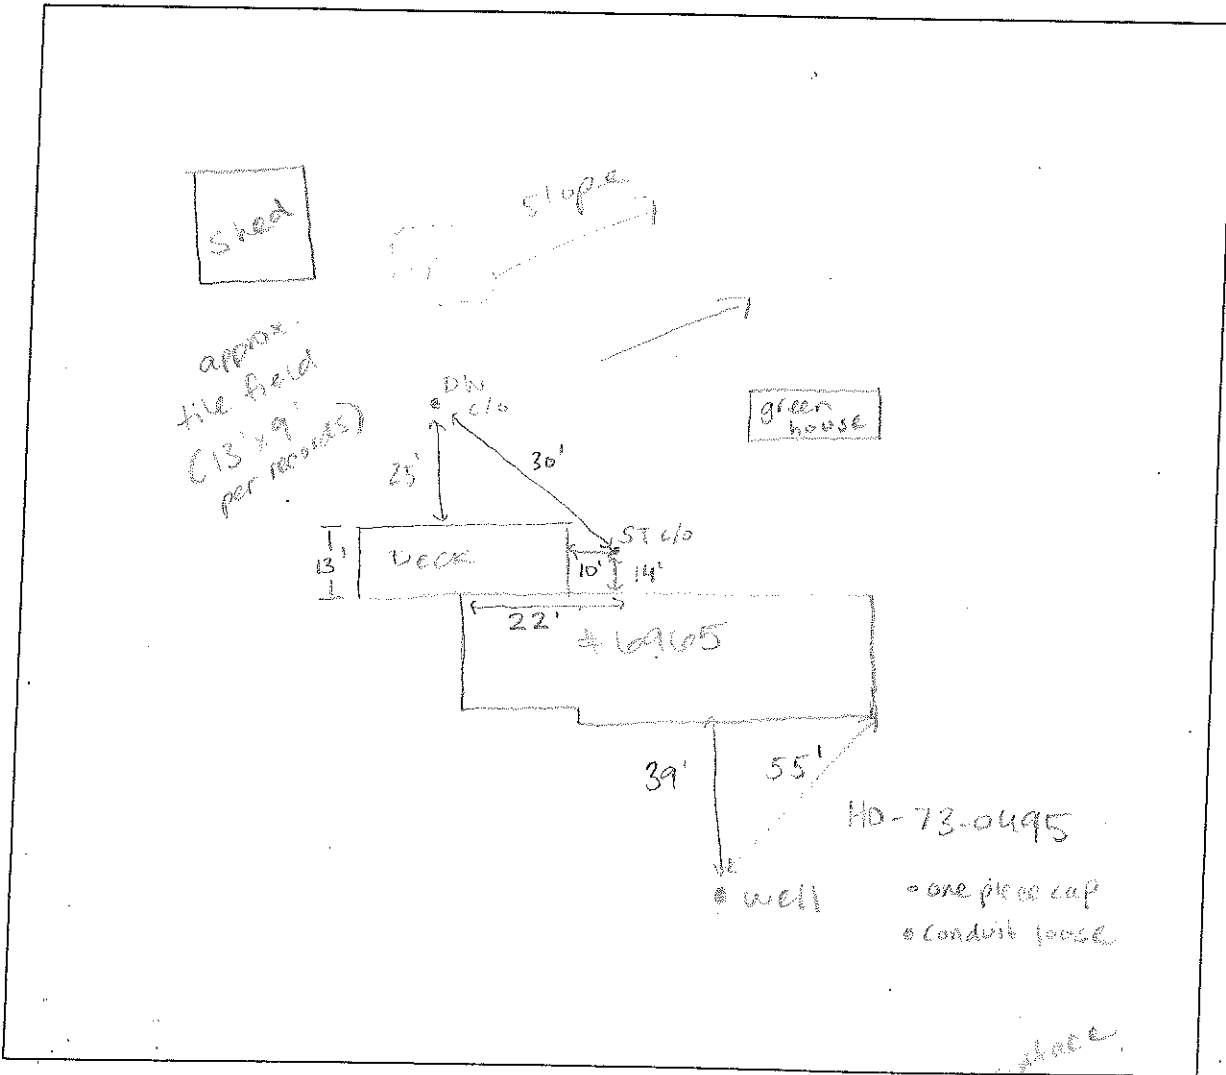 slope
shed
approx.
tile field
(13' x 9'
per records)
DW
c/o
green
house
25'
30'
ST c/o
13'
DECK
10'
14'
22'
#6965
39'
55'
HD-73-0495
well
• one piece cap
• conduit loose